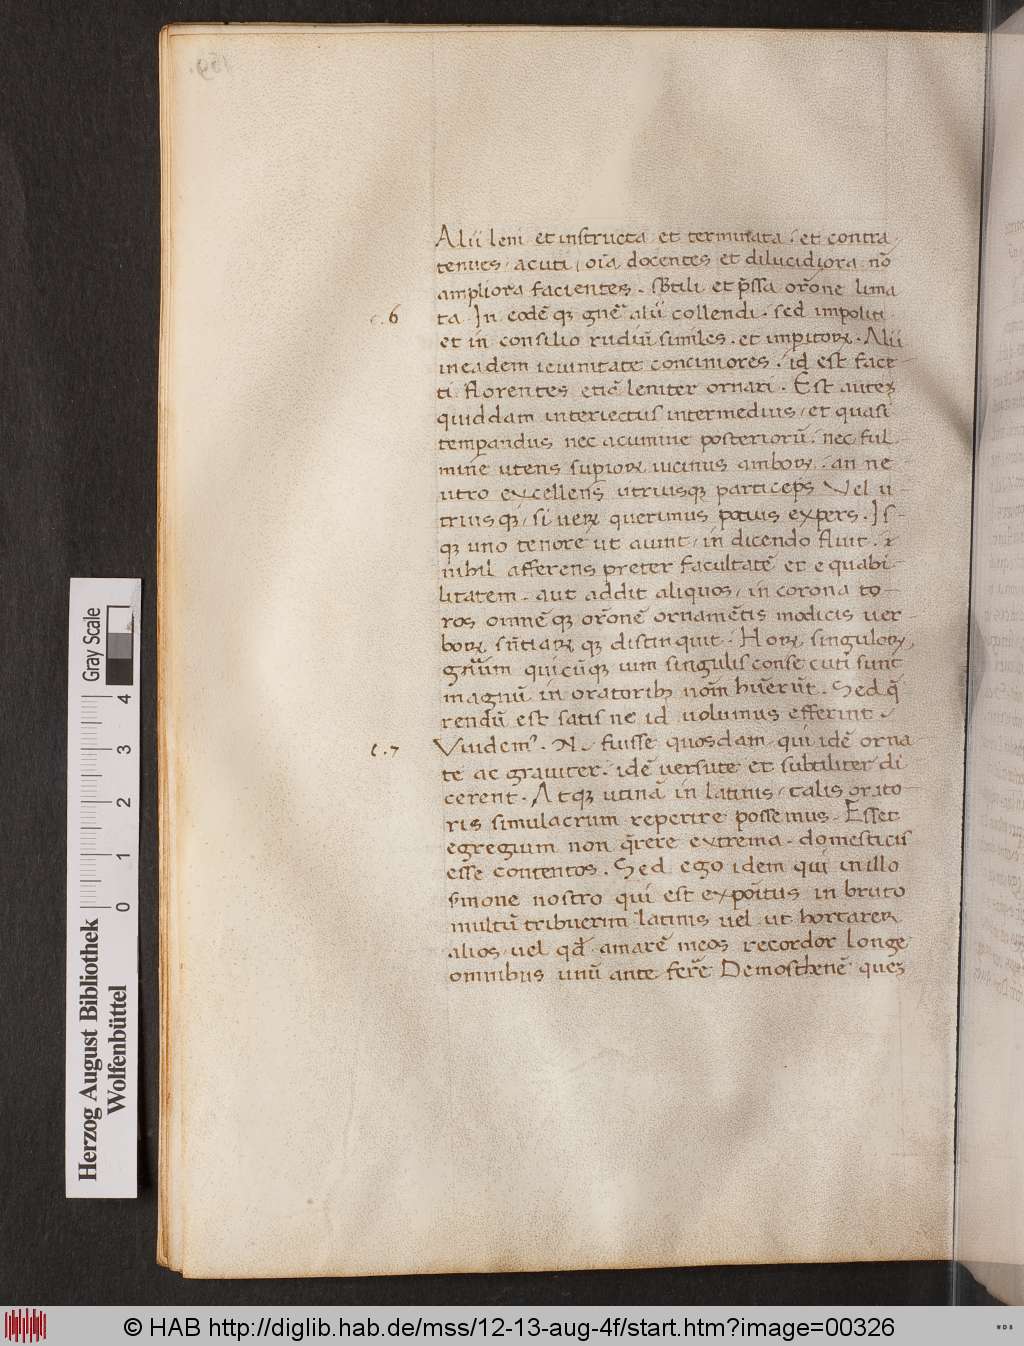 Alii leni et instructa et terminata. et contra
tenues, acuti, oīa docentes et dilucidiora nō
ampliora facientes. sbtili et p̄ssa or̄one lima
c. 6
ta In eodē qz gnē alii collendi. sed impoliti
et in consilio rudiū similes. et impitorꝝ. Alii
in eadem ieiunitate conciniores. id est face
ti florentes etiā leniter ornati. Est autez
quiddam interiectus intermedius, et quasi
temperandus nec acumine posteriorū. nec ful
mine utens supiorꝝ uicinus amborꝝ. an ne
utro excellens utriusqz particeps Vel u
triusqz, si uerꝝ querimus potius expers. Is
qz uno tenore ut aiunt, in dicendo fluit. &
nihil afferens preter facultatē et equabi
litatem. aut addit aliquos, in corona to
ros omnē qz or̄onē ornamētis modicis uer
borꝝ sn̄tiarꝝ qz distinquit. Horꝝ singulorꝝ
gn̄um quicūqz uim singulis consecuti sunt
magnū in oratoribꝫ nom̄ hūerūt. Sed q̄
rendū est satis ne id uolumus efferint
c. 7
Vuidemꝰ. N. fuisse quosdam qui idē orna
te ac grauiter. idē uersute et subtiliter di
cerent. Atqz utinā in latinis, talis orato
ris simulacrum reperire possemus. Esset
egregium non q̄rere extrema. domesticis
esse contentos. Sed ego idem qui in illo
s̄mone nostro qui est expoītus in bruto
multū tribuerim latinis uel ut hortarer
alios, uel qđ amarē meos recordor longe
omnibus unū ante fer̄e Demosthenē quez
Herzog August Bibliothek
Wolfenbüttel
0 1 2 3 4
Gray Scale
© HAB http://diglib.hab.de/mss/12-13-aug-4f/start.htm?image=00326